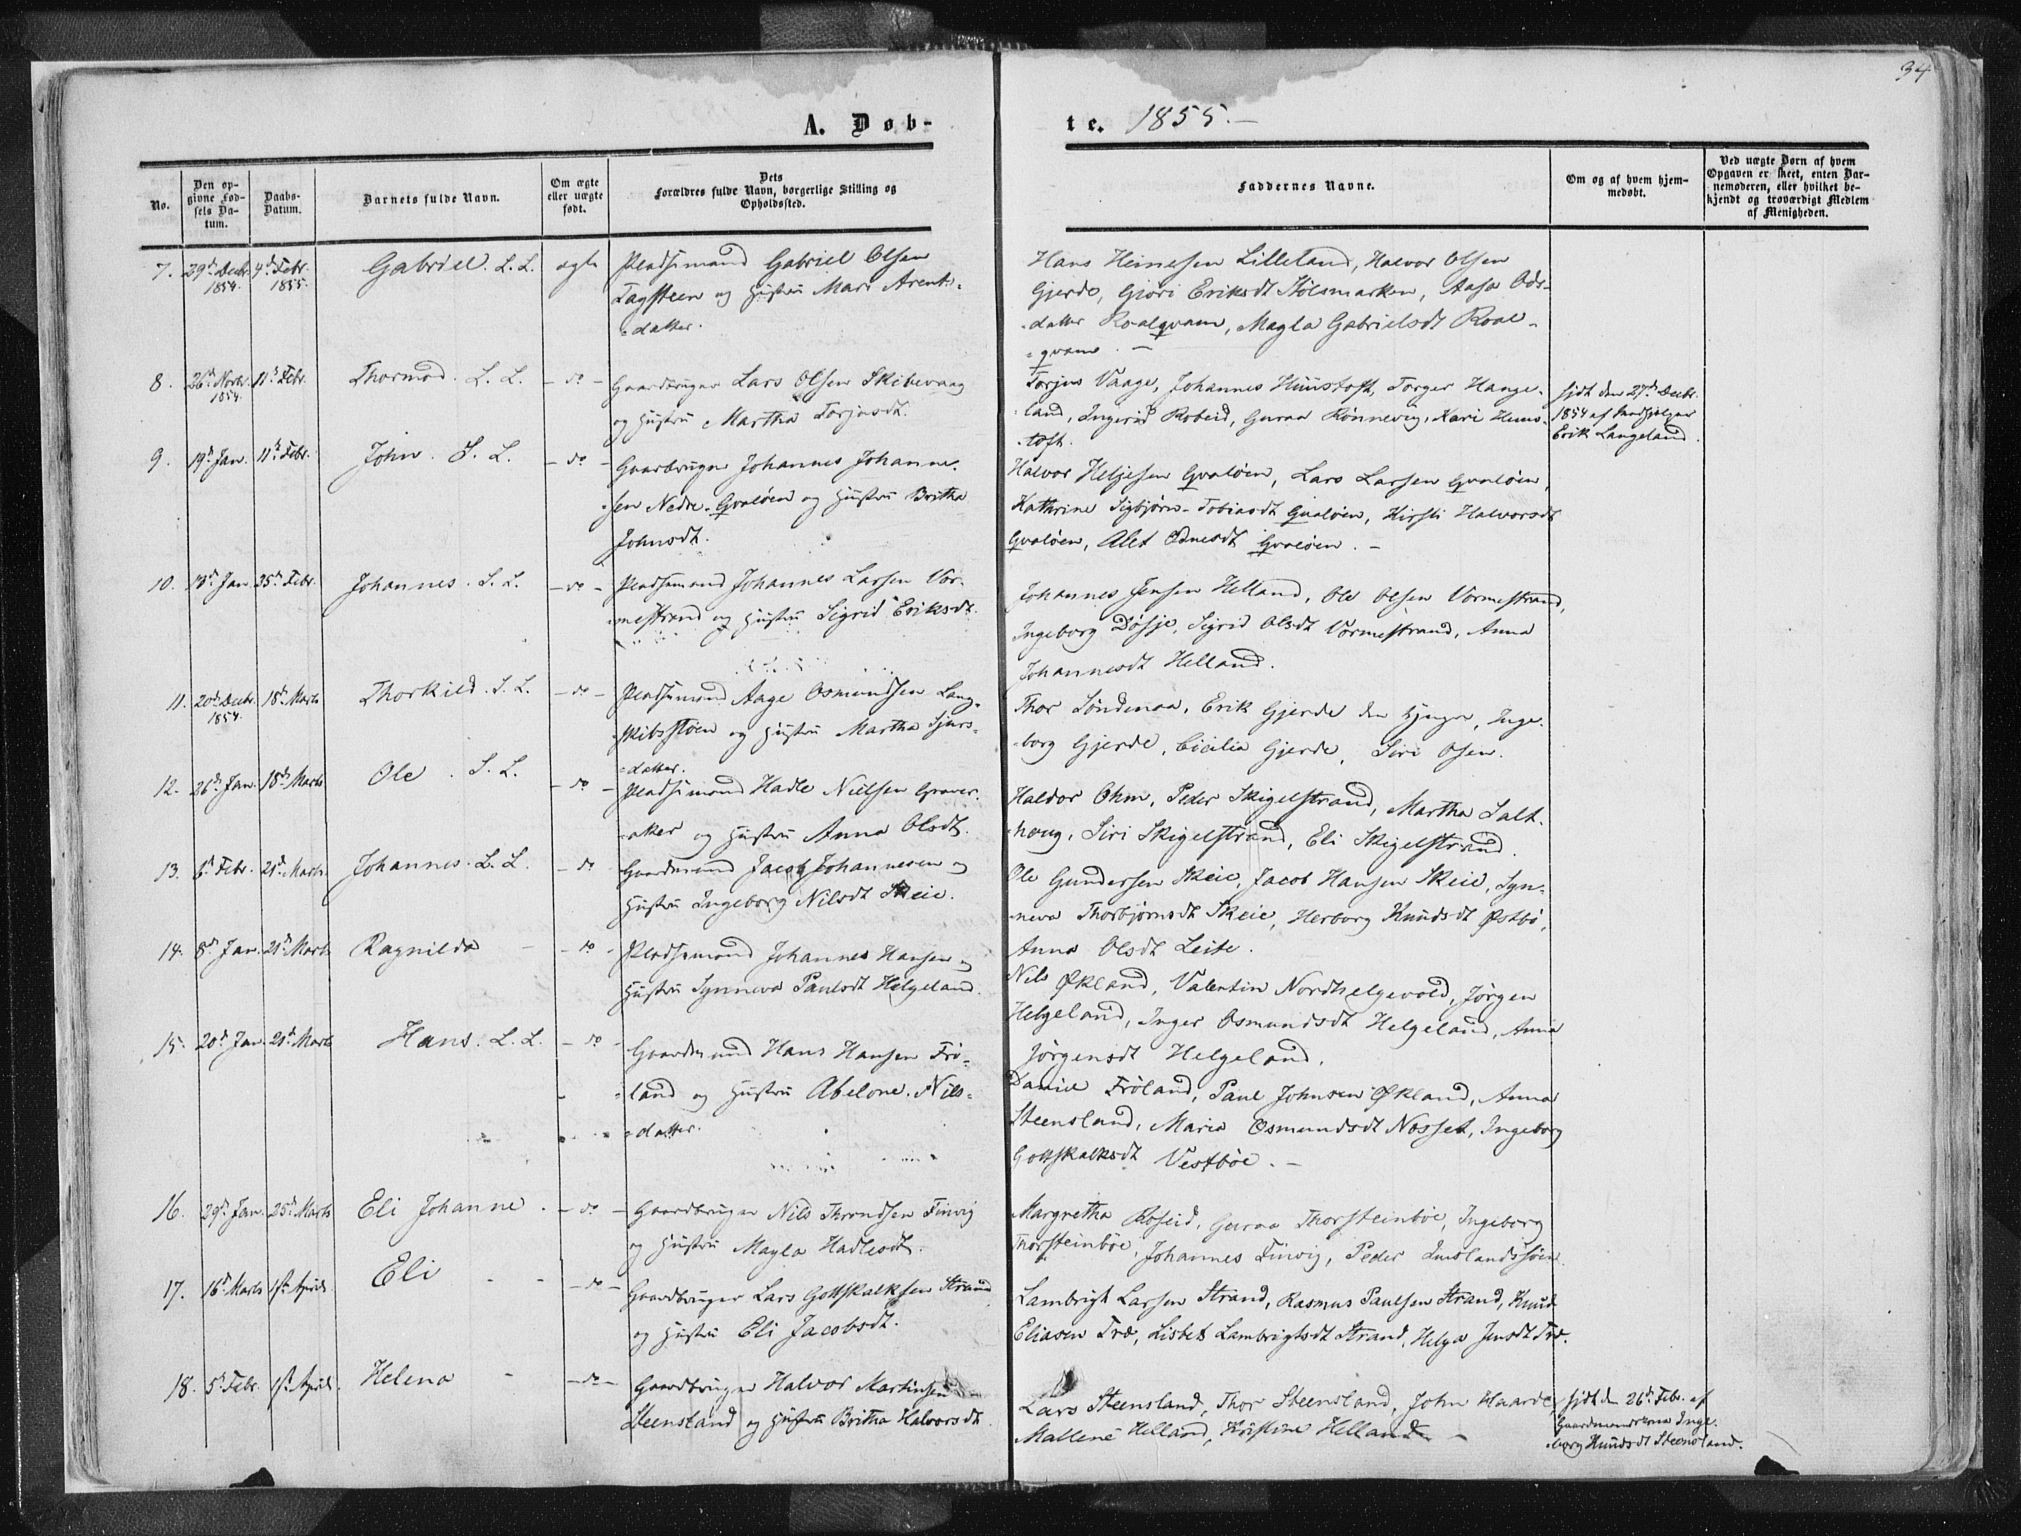 34
A. Døb-
te. 1855.-
No.
Den op-
givne Fød-
sels Da-
tum.
Daabs-
Datum.
Barnets fulde Navn.
Om ægte
eller uægte
født.
Dets
Forældres fulde Navn, borgerlige Stilling og
Opholdssted.
Faddernes Navne.
Om og af hvem hjem-
medøbt.
Ved uægte Børn af hvem
Opgaven er skeet, enten Bar-
nemoderen, eller hvilket be-
kjendt og troværdigt Medlem
af Menigheden.
7. 29d Decbr. 1854. 4d Febr. 1855. Gabriel. L. L. ægte Pladsmand Gabriel Olsen
Tagsteen og Hustru Mari Arents-
-datter.
Hans Heinesen Lilleland, Halvor Olsen
Gjerde, Gjøri Eriksdt Stølsmarken, Aasa Ods-
-datter Roalqvam, Magla Gabrielsdt Roal-
-qvam. -
8. 26d Novbr. 1854. 11d Febr. Thormod. L. L. - do - Gaardbruger Lars Olsen Skibevaag
og Hustru Martha Torjusdt.
Torjus Vaage, Johannes Huustoft, Torger Hauge-
-land, Ingerid Robeid, Guraa Rønnevig, Kari Huus-
-toft.
hjdt den 27d Decbr.
1854 af
Erik Langeland.
9. 19d Jan. 11d Febr. John. S. L. - do - Gaardbruger Johannes Johanne-
-sen Nedre-Qvaløen og Hustru Britha
Johnsdt.
Halvor Heljesen Qvaløen, Lars Larsen Qvaløen,
Kathrine Sigbjørn-Tobiasdt Qvaløen, Kirsti Halvorsdt
Qvaløen, Alet Ednesdt Qvaløen. -
10. 13d Jan 25d Febr. Johannes. S. L. - do - Pladsmand Johannes Larsen Vor-
-mestrand og Hustru Sigrid Eriksdt.
Johannes Jensen Helland, Ole Olsen Vormestrand,
Ingeborg Døsje, Sigrid Olsdt Vormestrand, Anna
Johannesdt Helland.
11. 20d Decbr. 1854. 18d Marts Thorkild. S. L. - do - Pladsmand Aage Osmundsen Lang-
-skibsstøen og Hustru Martha Sjurs-
-datter.
Thor Søndenaa, Erik Gjerde den yngre, Inge-
-borg Gjerde, Cicilia Gjerde, Siri Osen.
12. 26d Jan. 18d Marts Ole. S. L. - do - Pladsmand Hadle Nielsen Graver-
-aker og Hustru Anna Olsdt.
Haldor Ohm, Peder Skigelstrand, Martha Salt-
-houg, Siri Skigelstrand, Eli Skigelstrand.
13. 6d Febr. 21d Marts Johannes. L. L. - do Gaardmand Jacob Johannesen og
Hustru Ingeborg Nilsdt Skeie.
Ole Gundersen Skeie, Jacob Hansen Skeie, Syn-
-neva Thorbjørnsdt Skeie, Herborg Knudsdt Østbø,
Anna Olsdt Leite.
14. 8d Jan. 21d Marts Ragnilda - - do - Pladsmand Johannes Hansen og
Hustru Synneva Paulsdt Helgeland.
Nils Økland, Valentin Nordhelgevold, Jørgen
Helgeland, Inger Osmundsdt Helgeland, Anna
Jørgensdt Helgeland.
15. 20d Jan. 21d Marts Hans. L. L. - do - Gaardmand Hans Hansen Frø-
-land og Hustru Abelone Nils-
-datter.
Daniel Frøland, Paul Johnsen Økland, Anna
Steensland, Maria Osmundsdt Nosset, Ingeborg
Gottskalksdt Vestbøe. -
16. 29d Jan. 25d Marts Eli Johanne. - do - Gaardbruger Nils Throndsen Finvig
og Hustru Magla Hadlesdt.
Margretha Roseid, Guraa Thorsteinbøe, Ingeborg
Thorsteinbøe, Johannes Finvig, Peder Imslandssøen.
17. 16d Marts 1st April Eli - - - do - Gaardbruger Lars Gottskalksen Strand
og Hustru Eli Jacobsdt.
Lambrigt Larsen Strand, Rasmus Paulsen Strand, Knud
Eliasen Træ, Lisbet Lambrigtsdt Strand, Helga Jensdt Træ.
18. 5d Febr. 1st April. Helena - - do - Gaardbruger Halvor Martinsen
Steensland og Hustru Britha Halvorsdt.
Lars Steensland, Thor Steensland, John Haarde,
Mallene Helland, Kristine Helland -
hjdt den 26d Febr. af
Gaardmandskona Inge-
-borg Knudsdt Steensland.